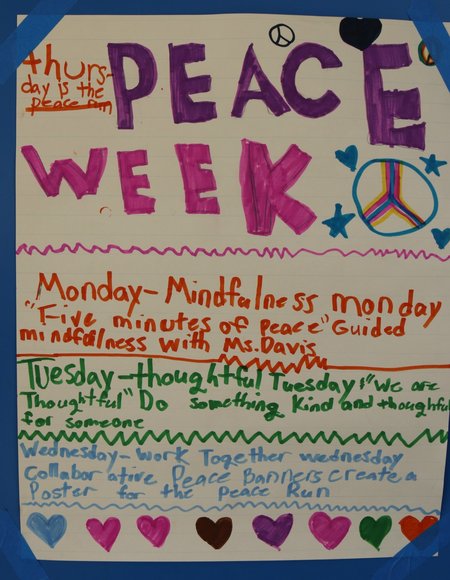 Thurs-
day is the
peace run
PEACE
WEEK
Monday-Mindfulness monday
"Five minutes of peace" Guided
mindfulness with Ms. Davis
Tuesday-thoughtful Tuesday! "We are
Thoughtful" Do something Kind and thoughtful
for someone
Wednesday-work Together wednesday
Collaborative Peace Banners Create a
Poster for the Peace Run